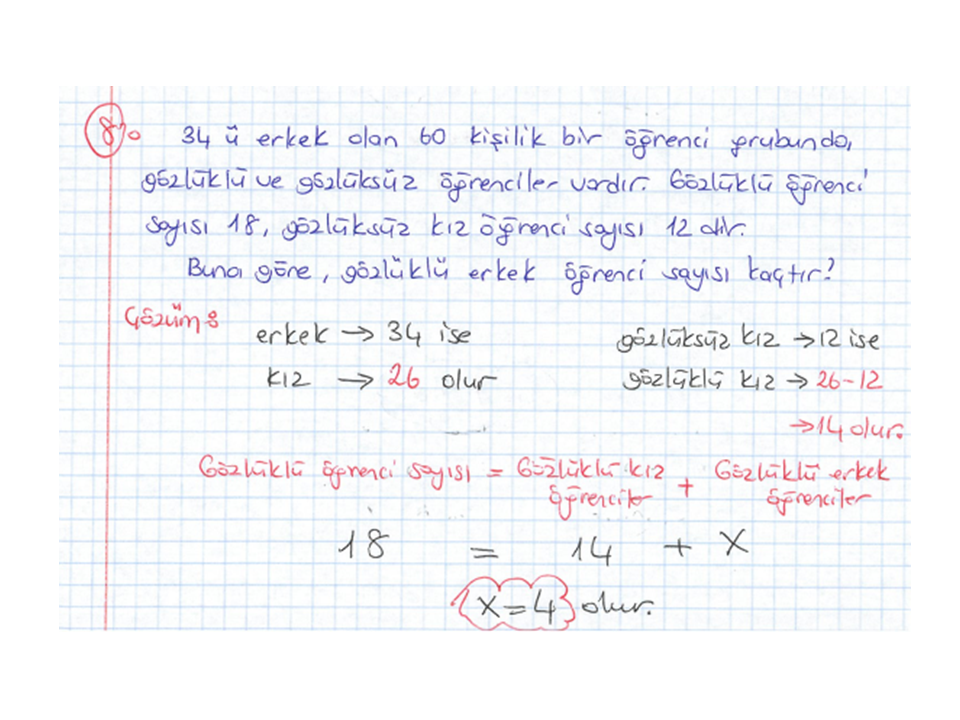 8) 34 ü erkek olan 60 kişilik bir öğrenci grubunda,
gözlüklü ve gözlüksüz öğrenciler vardır. Gözlüklü öğrenci
sayısı 18, gözlüksüz kız öğrenci sayısı 12 dir.
Buna göre, gözlüklü erkek öğrenci sayısı kaçtır?
Çözüm:
erkek → 34 ise
kız → 26 olur
gözlüksüz kız → 12 ise
gözlüklü kız → 26-12
→ 14 olur.
Gözlüklü öğrenci sayısı = Gözlüklü kız öğrenciler + Gözlüklü erkek öğrenciler
18 = 14 + x
x = 4 olur.